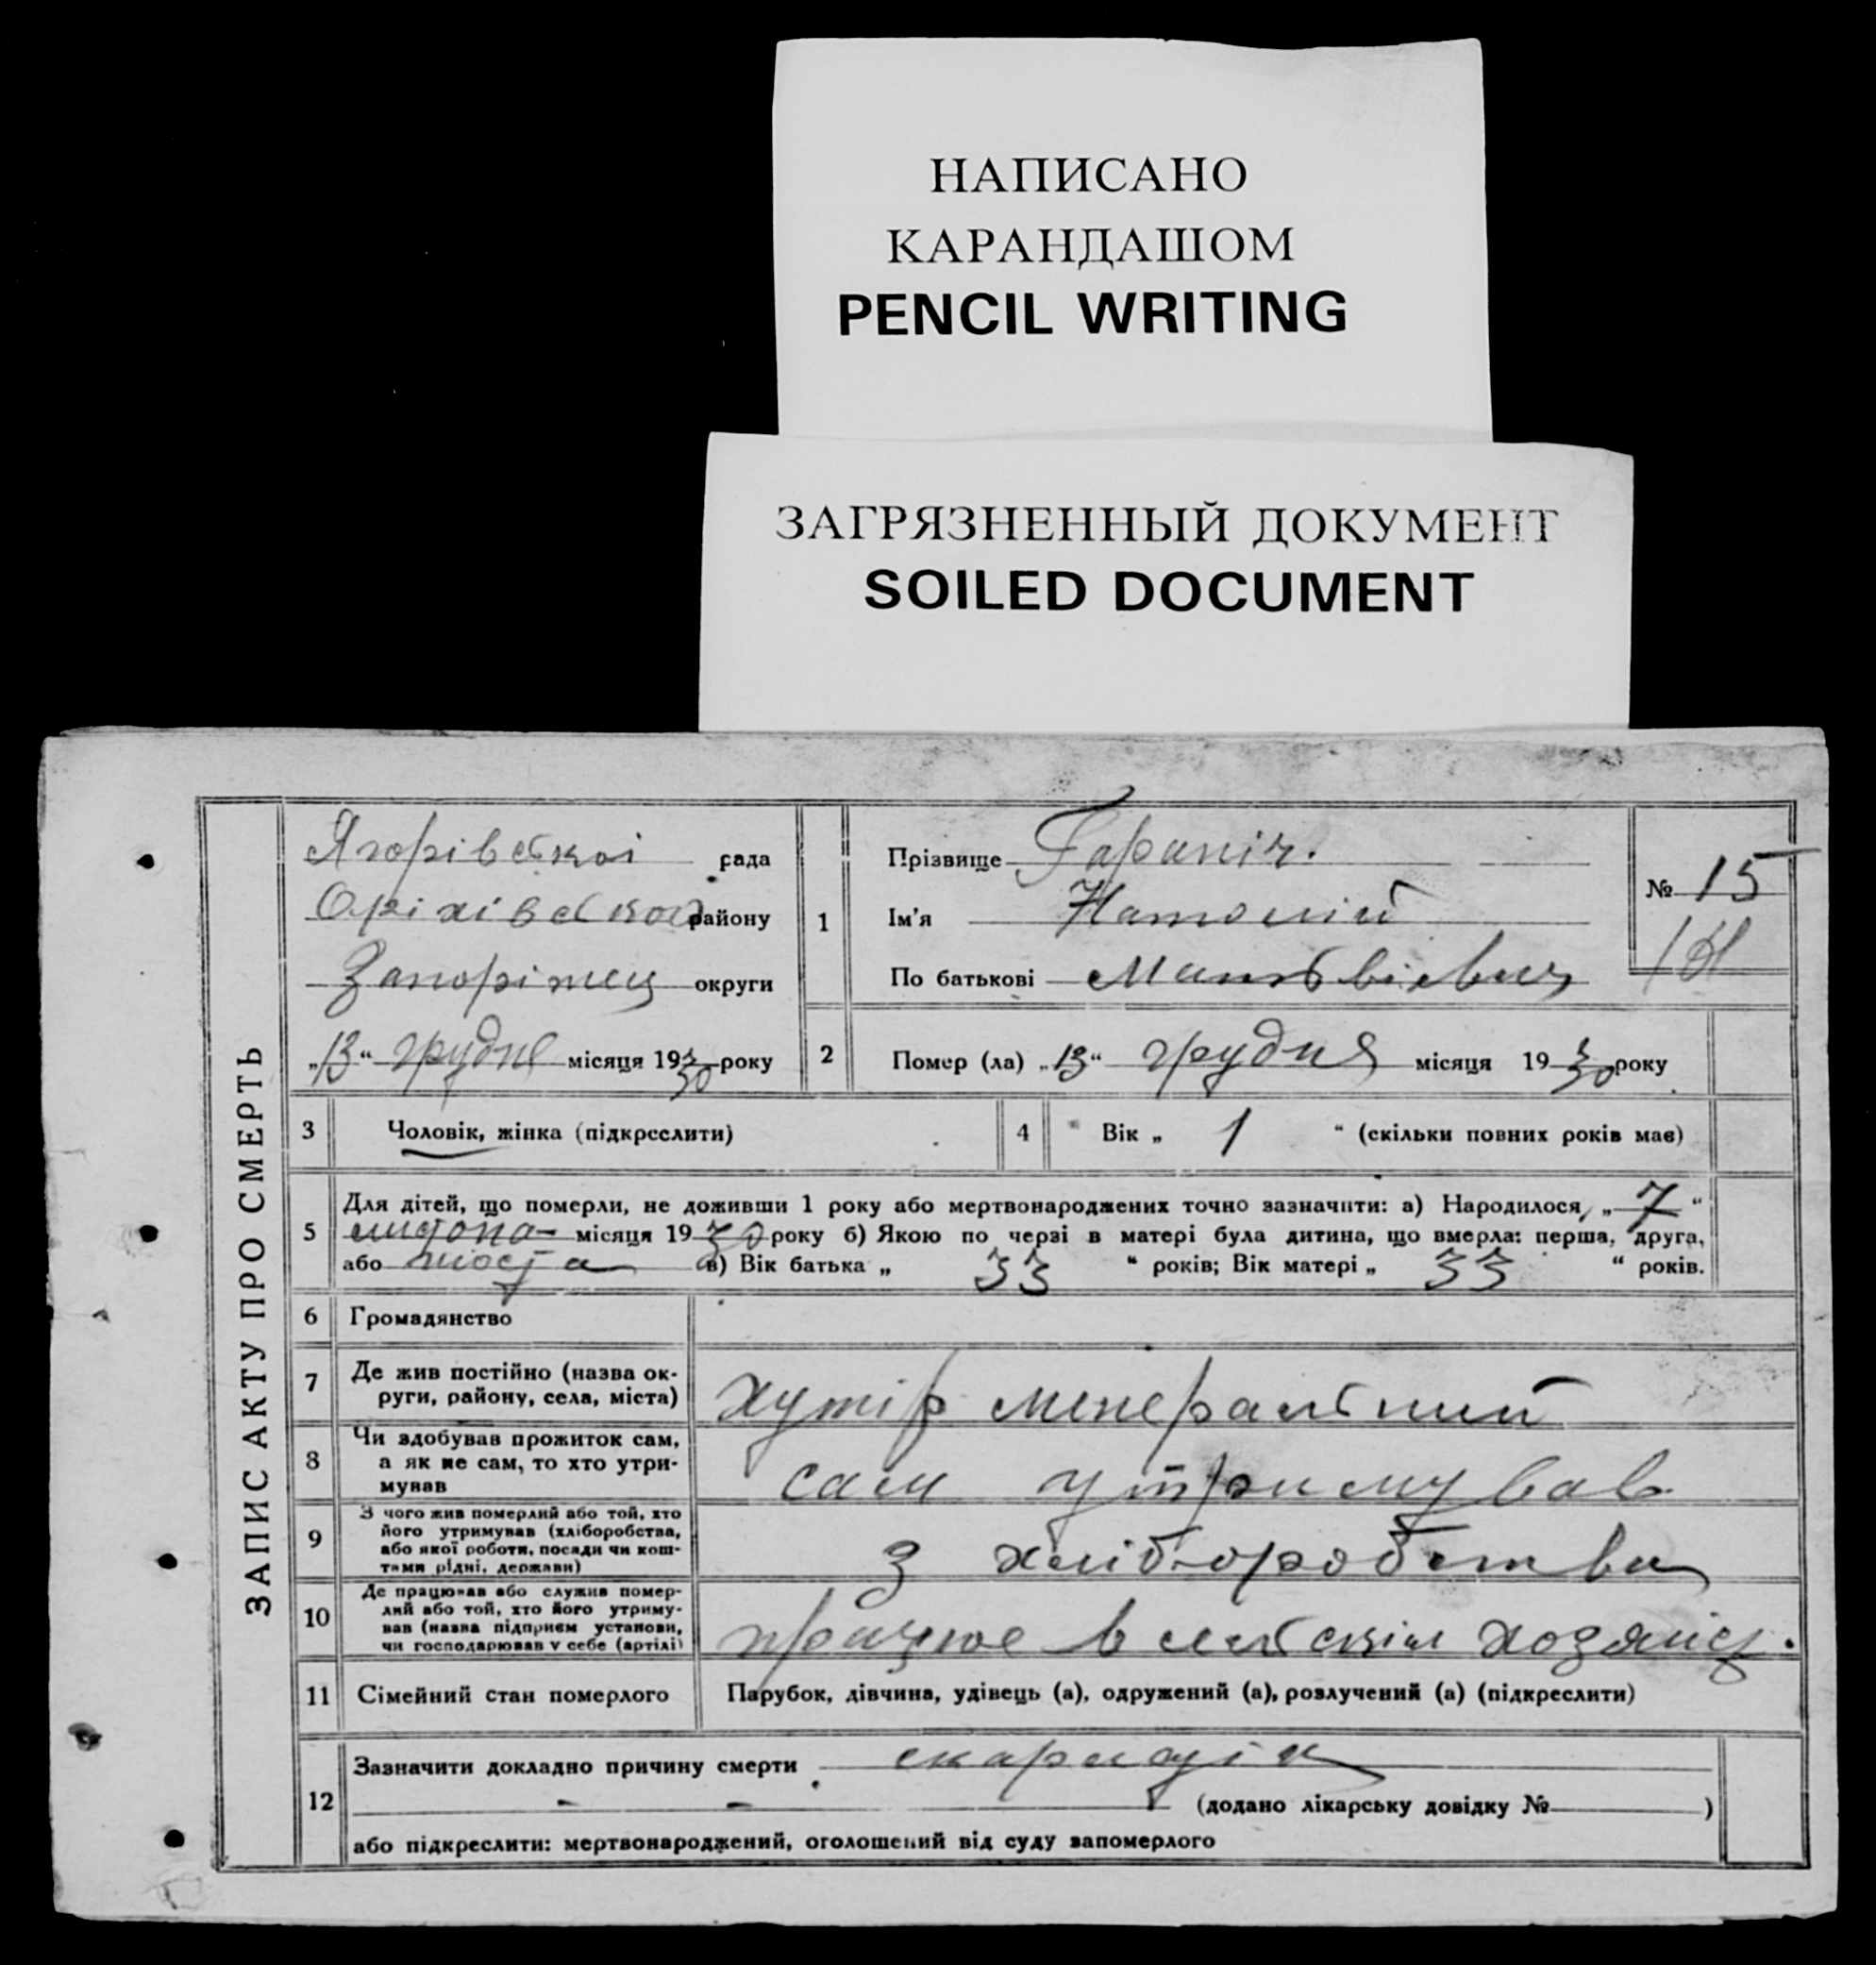 НАПИСАНО
КАРАНДАШОМ
PENCIL WRITING
ЗАГРЯЗНЕННЫЙ ДОКУМЕНТ
SOILED DOCUMENT
ЗАПИС АКТУ ПРО СМЕРТЬ
Ягорівської рада
Оріхівської району
Запоріжец округи
„13“ грудня місяця 1930 року
1
Прізвище Гараніч.
Ім'я Натолій
По батькові Матьвієвич
№ 15
2 Помер (ла) „13“ грудня місяця 1930 року
3 Чоловік, жінка (підкреслити)
4 Вік „ 1 “ (скільки повних років має)
5 Для дітей, що померли, не доживши 1 року або мертвонароджених точно зазначити: а) Народилося „ 7 “
листопа- місяця 1930 року б) Якою по черзі в матері була дитина, що вмерла: перша, друга,
або шоста в) Вік батька „ 33 “ років; Вік матері „ 33 “ років.
6 Громадянство
7 Де жив постійно (назва ок-
руги, району, села, міста) хутір мінеральний
8 Чи здобував прожиток сам,
а як не сам, то хто утри-
мував сам утримував
9 З чого жив померлий або той, хто
його утримував (хліборобства,
або якої роботи, посади чи кош-
тами рідні, держави) з хліборобства
10 Де працював або служив помер-
лий або той, хто його утриму-
вав (назва підприєм установи,
чи господарював у себе (артілі) працює в сільскім хозяйст.
11 Сімейний стан померлого Парубок, дівчина, удівець (а), одружений (а), розлучений (а) (підкреслити)
12 Зазначити докладно причину смерти скарлатін
- - (додано лікарську довідку № )
або підкреслити: мертвонароджений, оголошений від суду запомерлого